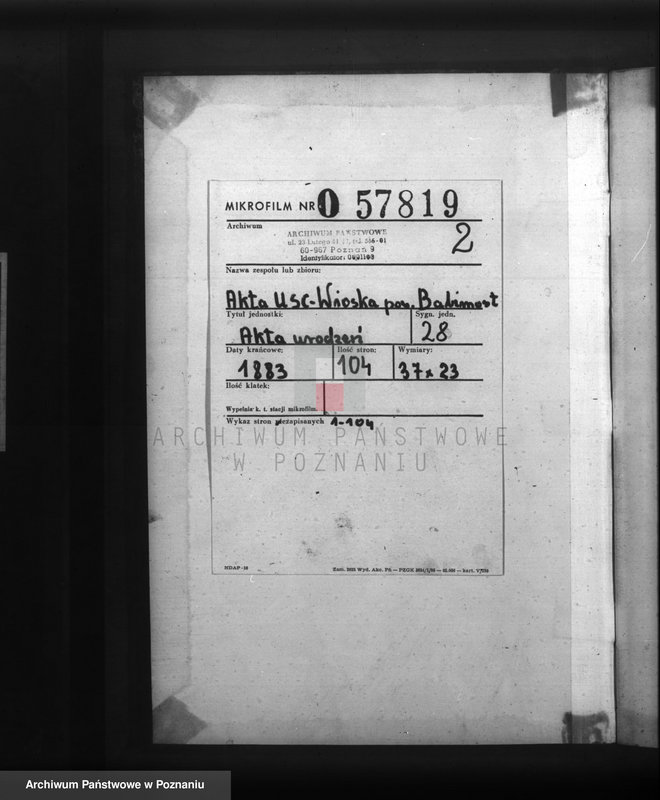 MIKROFILM NR O 57819
Archiwum
ARCHIWUM PAŃSTWOWE
ul. 23 Lutego
60-967 Poznań 9
Identyfikator:
2
Nazwa zespołu lub zbioru:
Akta USC-Wioska pow. Babimost
Tytuł jednostki:
Akta urodzeń
Sygn. jedn.
28
Daty krańcowe:
1883
Ilość stron:
104
Wymiary:
37x23
Ilość klatek:
Wypełnia k. t. stacji mikrofilm.
Wykaz stron zapisanych 1-104
ARCHIWUM PAŃSTWOWE
W POZNANIU
NDAP-16
Archiwum Państwowe w Poznaniu